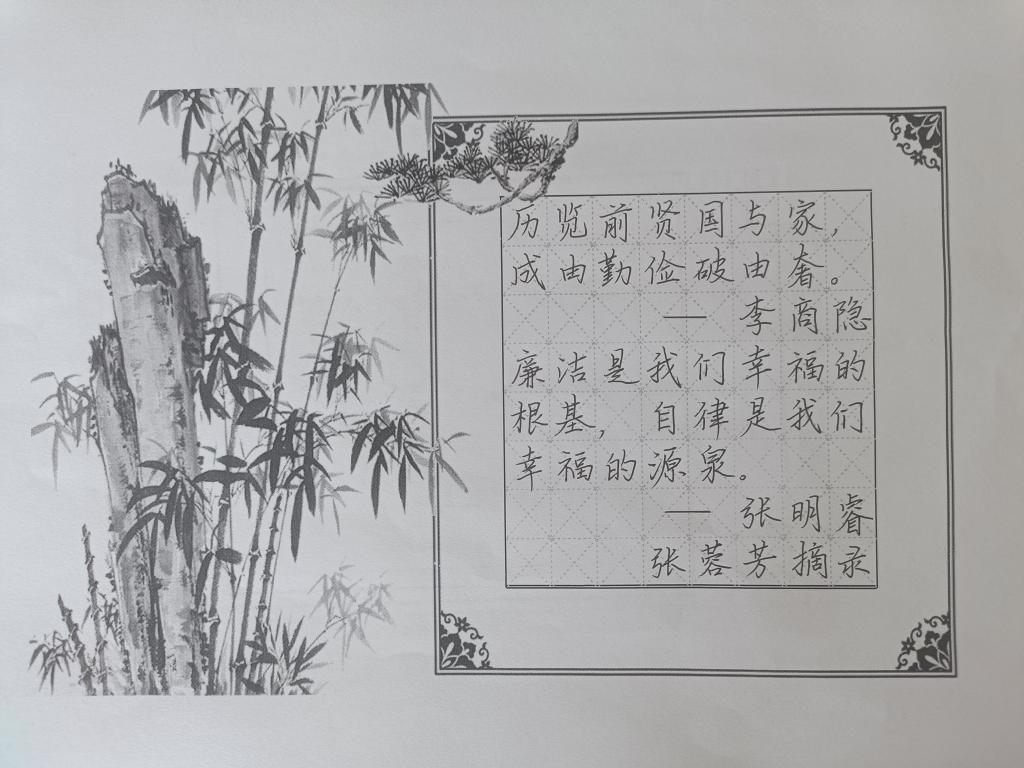 历览前贤国与家，
成由勤俭破由奢。
—李商隐
廉洁是我们幸福的
根基，自律是我们
幸福的源泉。
—张明睿
张蓉芳摘录